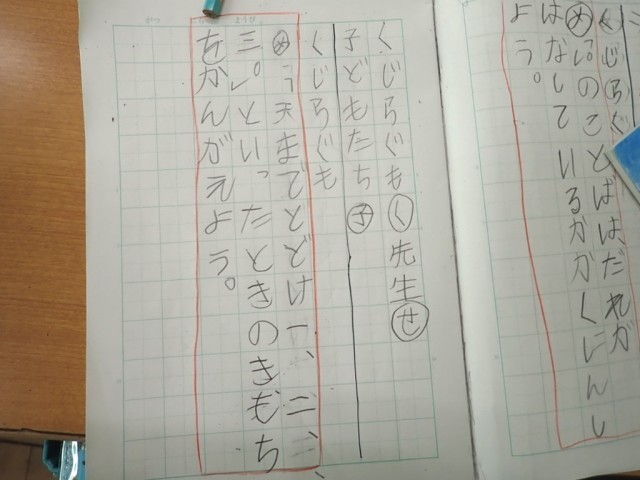 くじらぐ
め のことばはだれが
はなしているかかくにんし
よう。
くじらぐも く 先生 せ
子どもたち 子
くじらぐも
め 天までとどけ一、二、
三。」といったときのきもち
をかんがえよう。